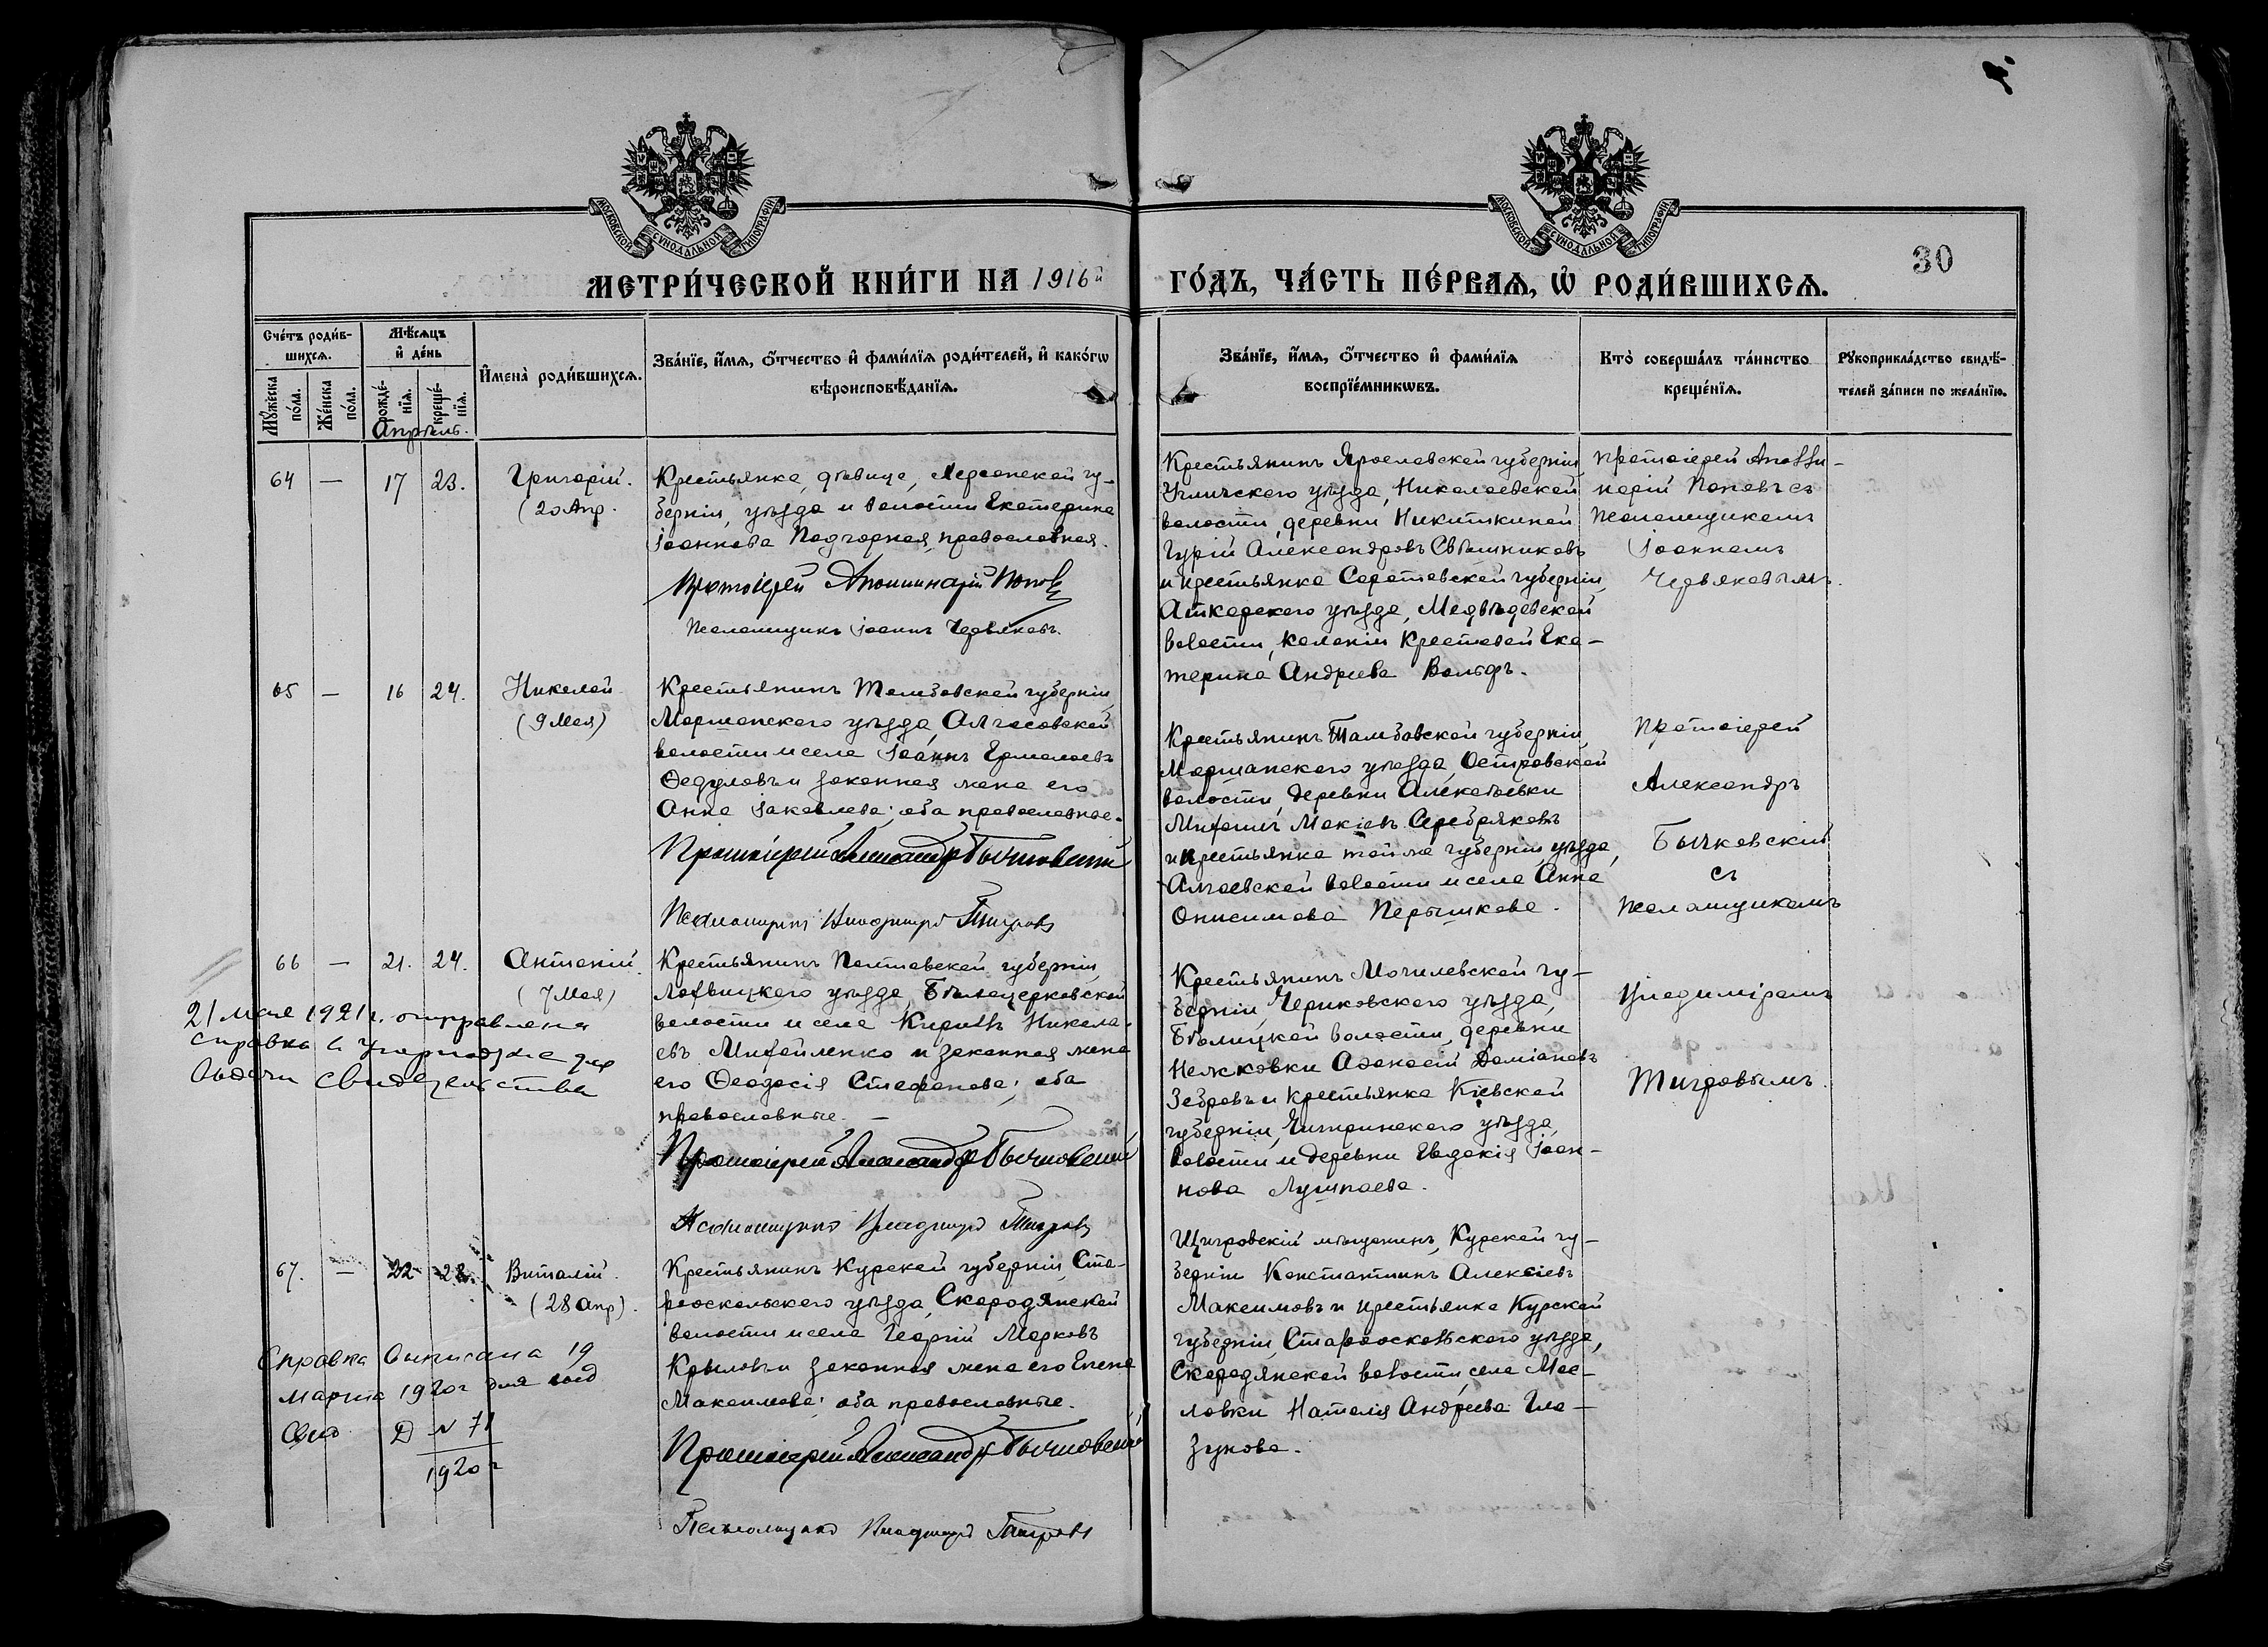 МОСКОВСКОЙ СУНОДАЛЬНОЙ ТИПОГРАФІИ
МОСКОВСКОЙ СУНОДАЛЬНОЙ ТИПОГРАФІИ
30
МЕТРИ́ЧЕСКОЙ КНИ́ГИ НА 1916й
ГО́ДЪ, ЧА́СТЬ ПЕ́РВАѦ, Ѡ҆ РОДИ́ВШИХСѦ.
Сче́тъ роди́в-
шихсѧ.
Мѣ́сѧцъ
и҆ де́нь
Мꙋ́жеска
по́ла.
Же́нска
по́ла.
рожде́-
нїѧ.
креще́-
нїѧ.
И҆мена̀ роди́вшихсѧ.
Зва́нїе, и҆́мѧ, ѻ҆́тчество и҆ фами́лїѧ роди́телей, и҆ како́гѡ
вѣроисповѣ́данїѧ.
Зва́нїе, и҆́мѧ, ѻ҆́тчество и҆ фами́лїѧ
воспрїе́мникѡвъ.
Кто̀ соверша́лъ та́инство
креще́нїѧ.
Рꙋкоприкла́дство свидѣ́-
телей за́писи по жела́нїю.
Апрѣль.
64 — 17 23. Григорій.
(20 Апр.
Крестьянка, дѣвица, Херсонской гу-
берніи, уѣзда и волости Екатерина
Іоаннова Подгорная, православная.
Протоіерей Аполлинарій Попов
Псаломщикъ Іоаннъ Червяковъ.
Крестьянинъ Ярославской губерніи,
Угличскаго уѣзда, Николаевской
волости, деревни Никиткиной
Гурій Александровъ Свѣшниковъ
и крестьянка Саратовской губерніи,
Аткарскаго уѣзда, Медвѣдевской
волости, колоніи Крестовой Ека-
терина Андреева Вольфъ.
Протоіерей Аполли-
нарій Поповъ съ
Псаломщикомъ
Іоанномъ
Червяковымъ.
65 — 16 24. Николай
(9 Мая)
Крестьянинъ Тамбовской губерніи,
Моршанскаго уѣзда, Алгасовской
волости и села Іоаннъ Ермолаевъ
Ѳедуловъ и законная жена его
Анна Іаковлева; оба православные.
Протоіерей Александр Бычковский
Псаломщикъ Владимір Тигровъ
Крестьянинъ Тамбовской губерніи,
Моршанскаго уѣзда, Островской
волости, деревни Алексѣевки
Михаилъ Мокіевъ Серебряковъ
и крестьянка той же губерніи, уѣзда,
Алгаевской волости и села Анна
Онисимова Перышкова.
Протоіерей
Александръ
Бычковскій
съ
Псаломщикомъ
66 — 21. 24. Антоній.
(7 Мая)
21 мая 1921 г. отправлена
справка в
выдачи свидетельства
Крестьянинъ Полтавской губерніи,
Лохвицкаго уѣзда, Бѣлоцерковской
волости и села Кириллъ Никола-
евъ Михайленко и законная жена
его Ѳеодосія Стефанова; оба
православные. —
Протоіерей Александр Бычковский
Псаломщикъ Владимір Тигровъ
Крестьянинъ Могилевской гу-
берніи, Чериковскаго уѣзда,
Бѣлицкой волости, деревни
Нежковки Аѳанасій Даміановъ
Зебровъ и крестьянка Кіевской
губерніи, Чигиринскаго уѣзда,
волости и деревни Евдокія Іоан-
нова Лушпаева.
Владиміромъ
Тигровымъ.
67. — 22 28. Виталій.
(28 Апр).
Справка выписана 19
марта 1920 г для
Д № 71
1920 г
Крестьянинъ Курской губерніи, Ста-
рооскольскаго уѣзда, Скородянской
волости и села Георгій Марковъ
Крыловъ и законная жена его Елена
Максимова; оба православные.
Протоіерей Александр Бычковский
Псаломщикъ Владимір Тигровъ
Щигровскій мѣщанинъ, Курской гу-
берніи Константинъ Алексіевъ
Максимовъ и крестьянка Курской
губерніи Старооскольскаго уѣзда,
Скородянской волости, села Мас-
ловки Наталія Андреева Гла-
зунова.